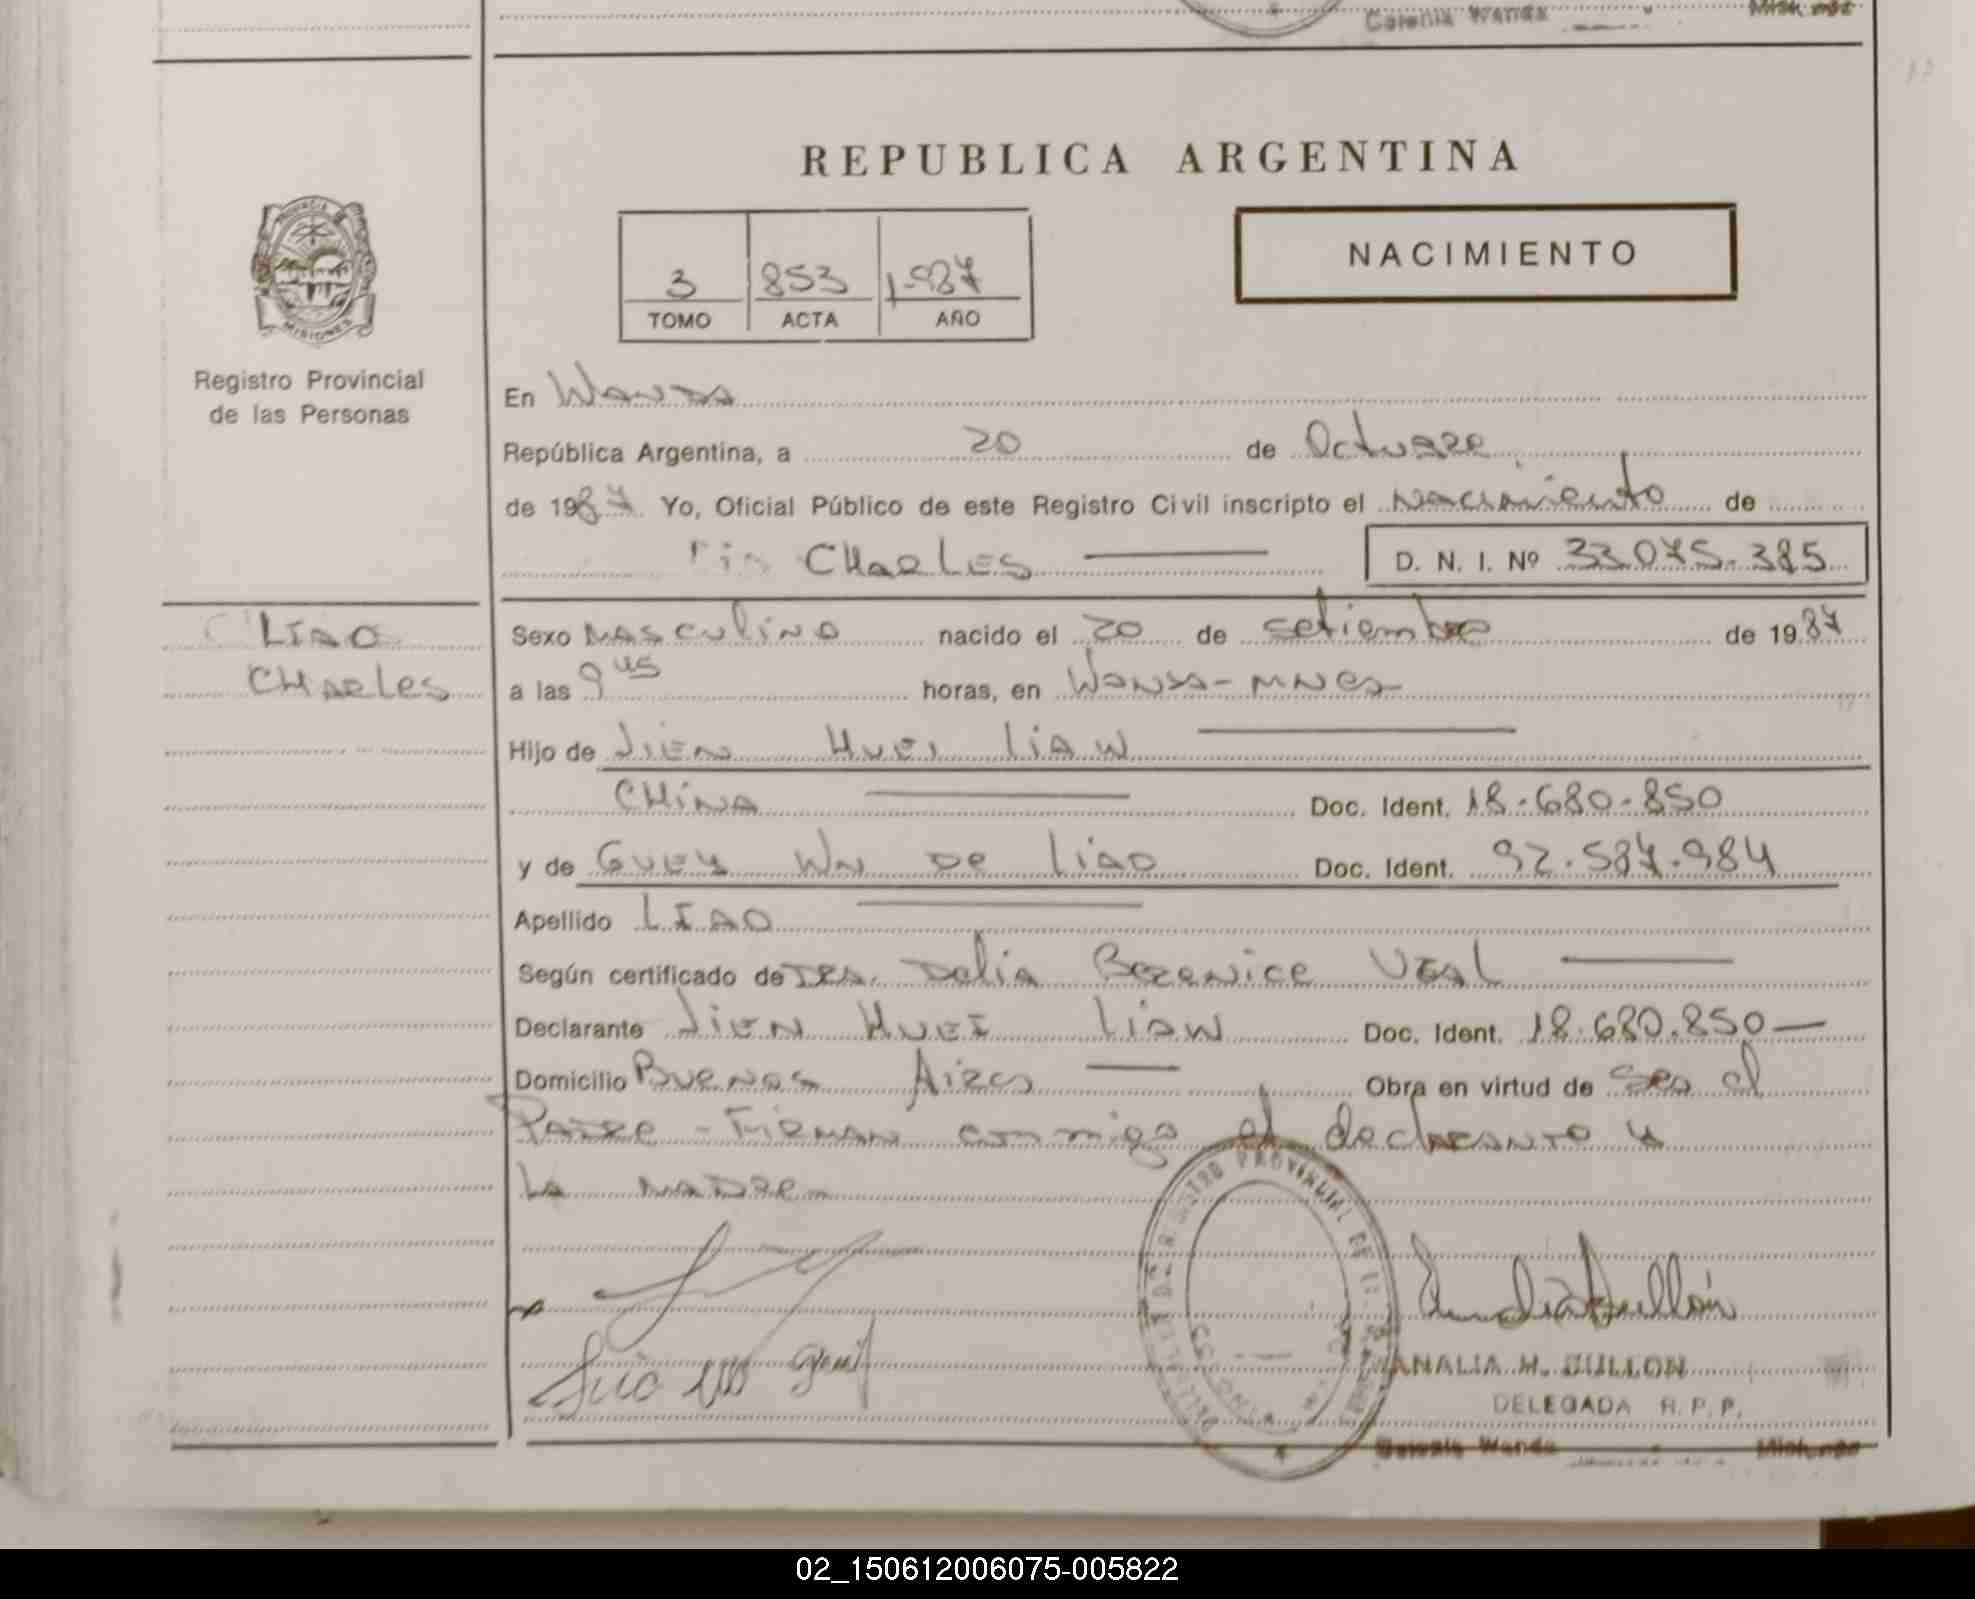 Colonia Wanda
REPUBLICA ARGENTINA
NACIMIENTO
3 853 1.987
TOMO ACTA AÑO
PROVINCIA
MISIONES
Registro Provincial
de las Personas
En Wanda
República Argentina, a 20 de Octubre
de 1987 Yo, Oficial Público de este Registro Civil inscripto el Nacimiento de
CHARLES D. N. I. Nº 33.075.385
LIAO
CHARLES
Sexo Masculino nacido el 20 de setiembre de 1987
a las 9 45 horas, en Wanda - Mnes
Hijo de JIEN HUEI LIAW
CHINA Doc. Ident. 18.680.850
y de GUEY WN DE LIAO Doc. Ident. 92.587.984
Apellido LIAO
Según certificado de DRA. Delia Berenice
Declarante JIEN HUEI LIAW Doc. Ident. 18.680.850
Domicilio Buenos Aires Obra en virtud de ser el
Padre - Firman conmigo el declarante y
La Madre -
ANALIA M. DULLON
DELEGADA R.P.P.
Colonia Wanda Misiones
02_150612006075-005822